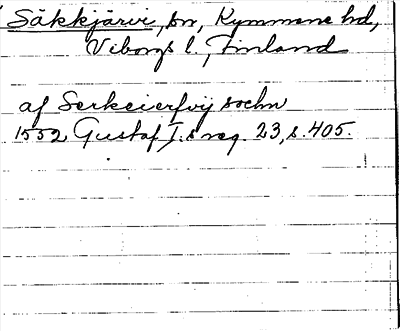 Säkkjärvi, sn, Kymmene hd,
Viborgs l., Finland
af Serkeierfvij sochn
1552 Gustaf I:s reg. 23, s. 405.